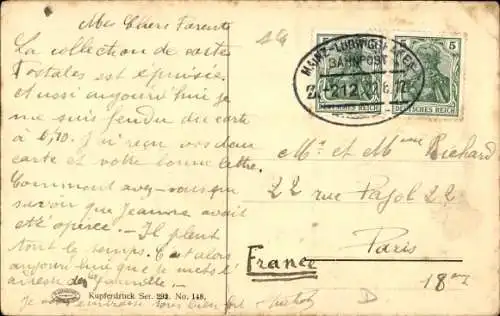 Mes Chers Parents
La collection de cartes
Postales est épuisée.
et aussi aujourd'hui je
me suis fendu du carte
à 0,10. J'ai reçu vos deux
carte et votre bonne lettre.
Comment avez-vous que
savoir que Jeanne avait
été opérée. — Il pleut
tout le temps. C'est alors
aujourd'hui que je mets l'
adresse de la famille —
Je vous embrasse tous bien fort
Kupferdruck Ser. 292. No. 148.
MAINZ-LUDWIGSHAFEN
BAHNPOST
Z. 212
5
5
DEUTSCHES REICH
DEUTSCHES REICH
Mr et Mme Richard
22 rue Pajol 22
Paris
France
18me